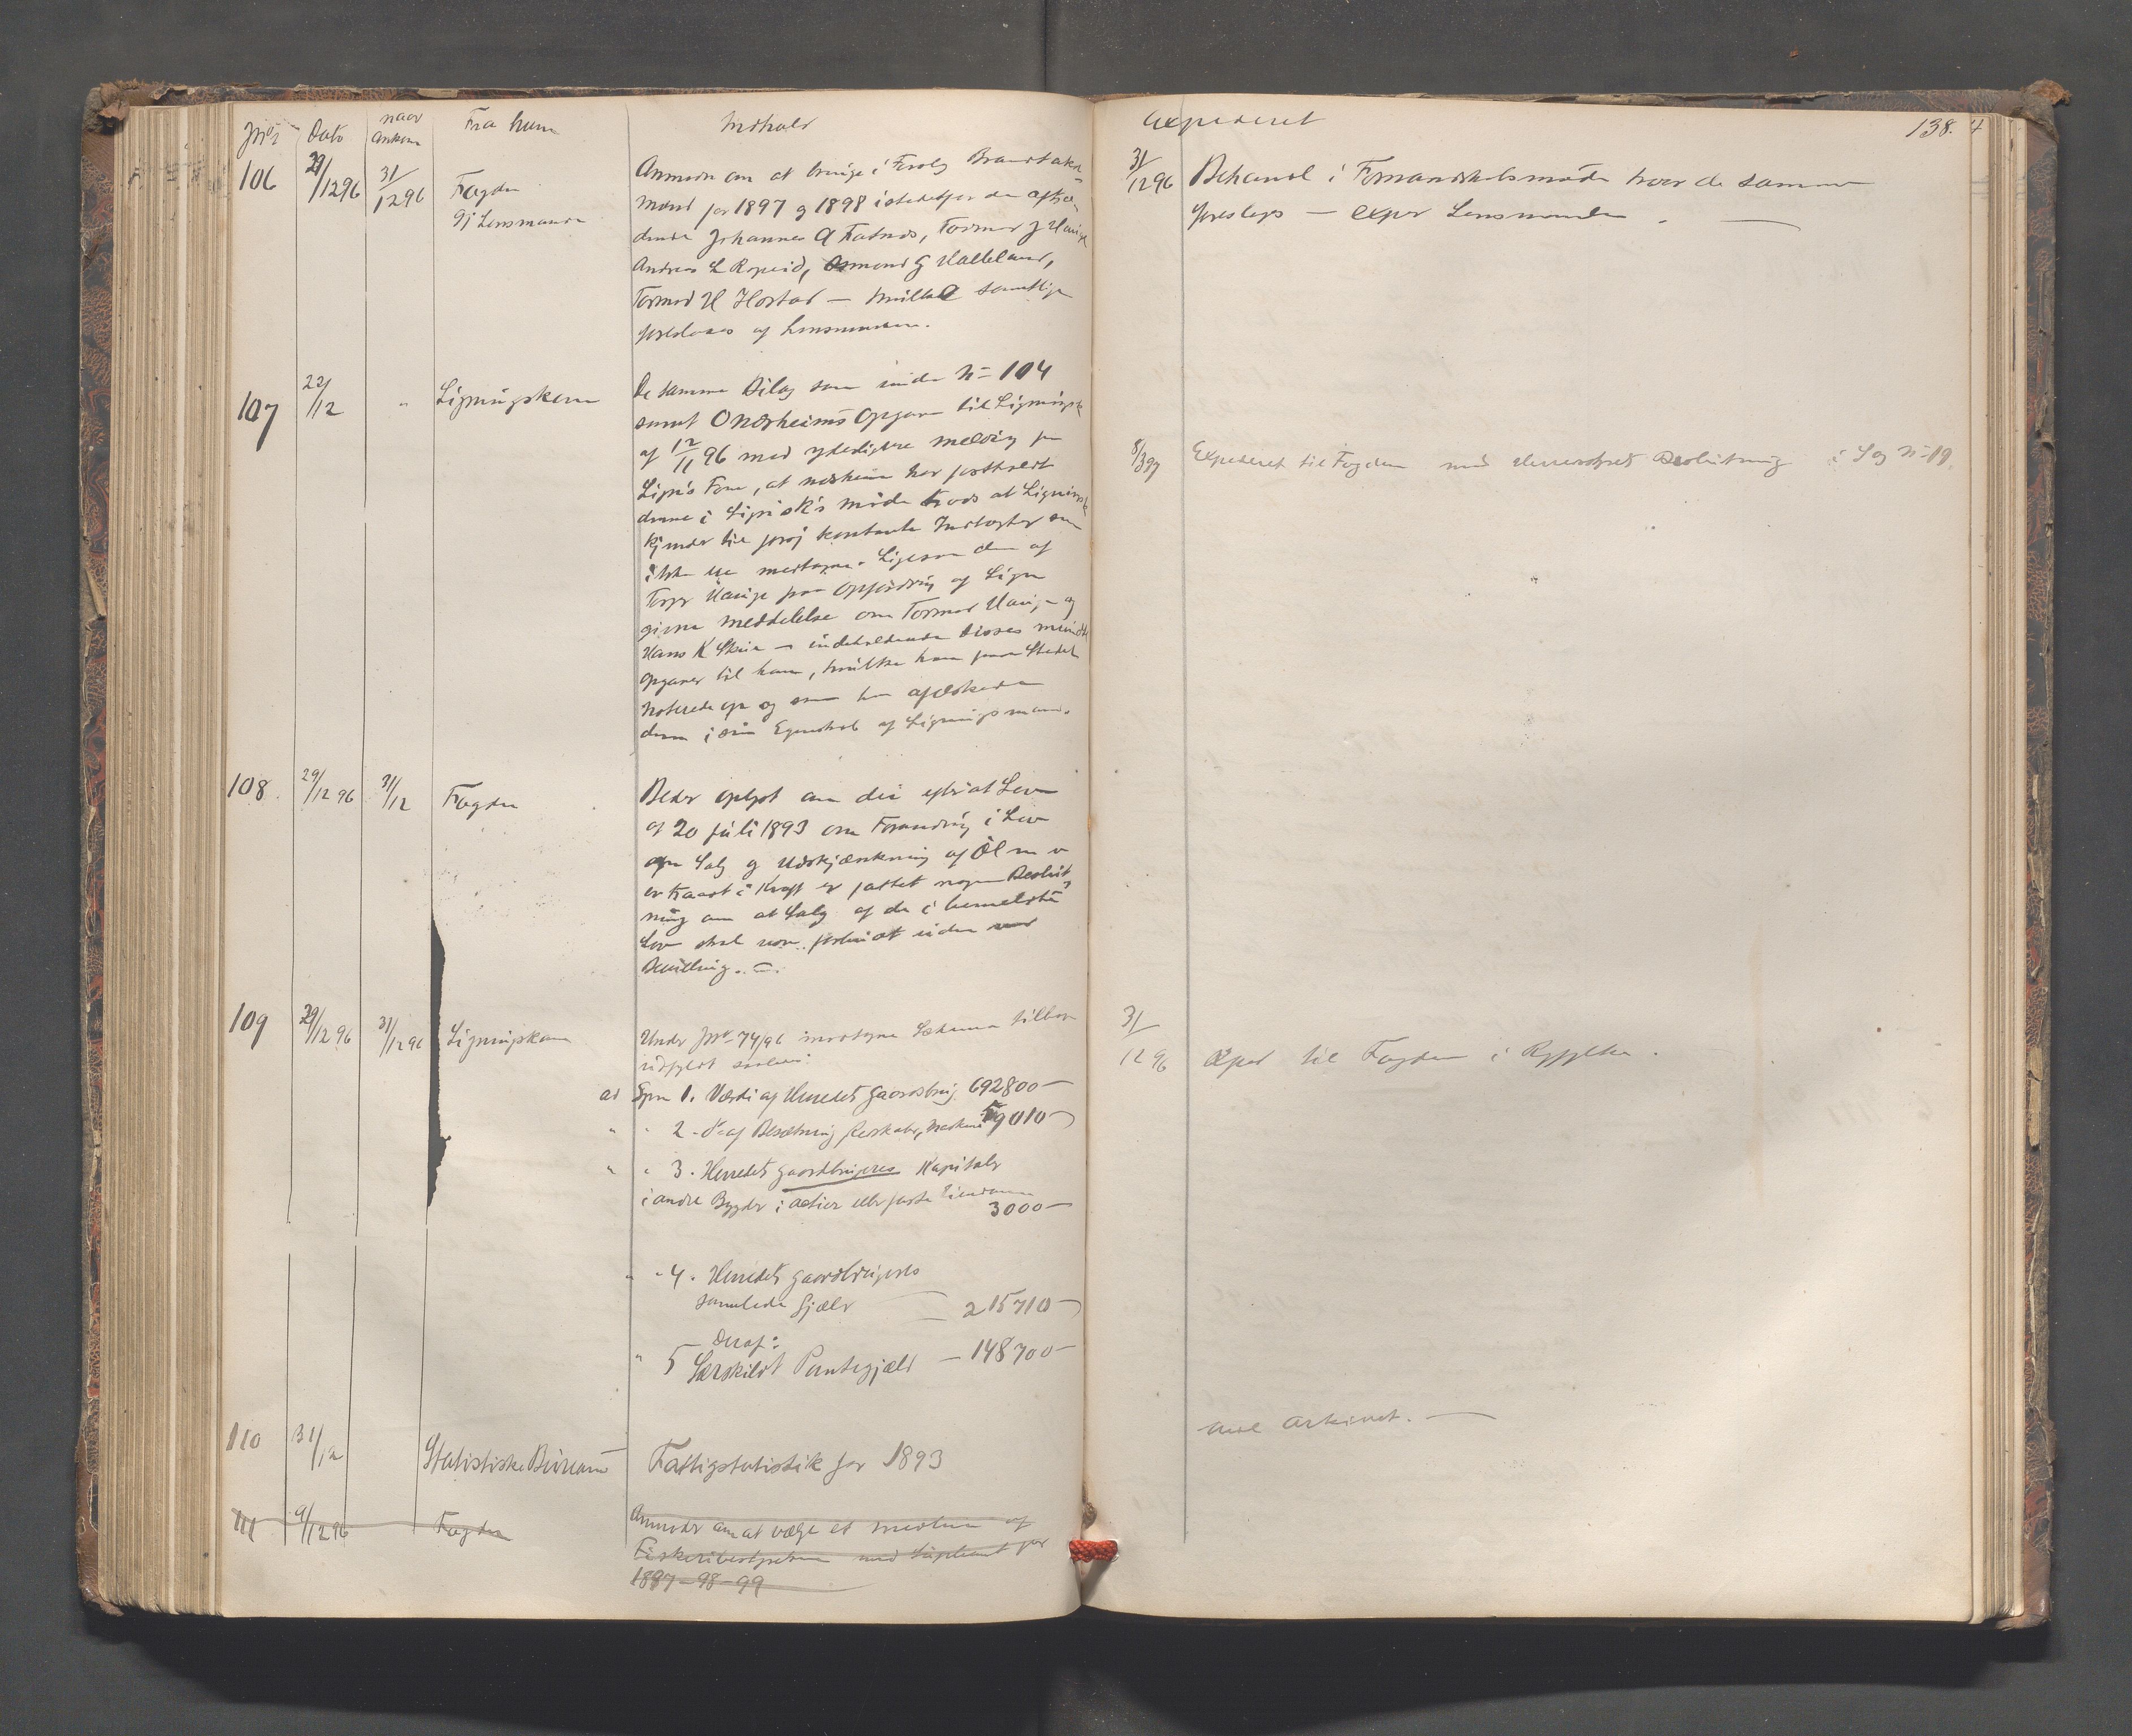 Jnr Dato naar ankom Fra hvem Indhold
106 29/1296 31/1296 Fogden gj Lensmanden
Anmodn om at bringe i Forslag Brandtakst
mænd for 1897 g 1898 istedetfor de aftræ-
dende Johannes A Fatnes, Tormod J Hauge
Andreas L Ropeid, Osmund G Halleland,
Tormod H Hostad — hvilke samtlige
foreslaaes af Lensmanden.
107 22/12 " Ligningskom
De samme Bilag som under N= 104
samt Onærheims Opgave til Lignings
af 12/11 96 med yderligere melding fra
Lign's Form, at nærheim har fastholdt
denne i Lign's møde trods at Lignings
kjender til
ikke er medtagne. Ligesom den af
Hauge paa Opfordring af Lign
givne meddelelse om Tormod Hauge og
Hans K — indeholdende disses mundtl
Opgaver til ham, hvilke han paa Stedet
noterede op og som han afæskede
dem i sin Egenskab af Ligningsmand.
108 29/12 96 31/12 Fogden
Beder oplyst om der efter at Lov
af 20 juli 1893 om Forandring i Lov
om Salg g Udskjænkning af Öl m v
er traadt i Kraft er fattet nogen Beslut
ning om at Salg af de i bemeldte
Lov skal være forbudt uden
Bevilling. —
109 29/12 96 31/1296 Ligningskom
Under Jnr 74/96 modtagne Skema tilbage
udfyldt saaledes:
ad Spm 1. Værdi af Herredets gaardsbrug 692800—
" " 2 - do af Besætning Redskaber, Maskiner 9010—
" " 3. Herredets gaardbrugeres Kapitaler
i andre Bygder i actier eller faste Eiendomme
3000—
" " 4. Herredets gaardbrugeres
samlede gjæld — 215710—
Deraf:
" 5 Særskilt Pantegjæld — 148700—
110 31/12 Statistiske Büreau Fattigstatistik for 1893
111 9/1296 Fogden Anmoder om at vælge et medlem af
Fiskeribestyrelsen med Supleant for
1897-98-99
Expederet 138.
31/1296 Behandl i Formandskabsmøde hvor de samme
foreslaps — exper Lensmanden. —
8/3 97 Expederet til Fogden med Herredsst Beslutning i Sag N= 19.
31/12 96 Exped til Fogden i Ryfylke.
ved Arkivet. —